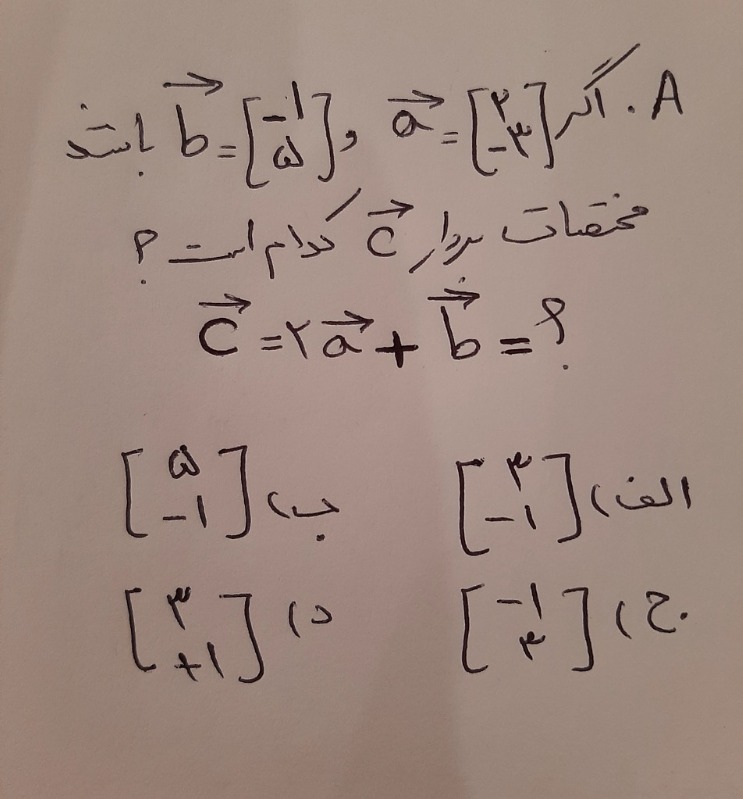 A. اگر a⃗ = [۲ -۳] و b⃗ = [-۱ ۵] باشد
مختصات بردار c⃗ کدام است ؟
c⃗ = ۲a⃗ + b⃗ = ؟
الف) [۳ -۱] ب) [۵ -۱]
ج) [-۱ ۳] د) [۳ +۱]